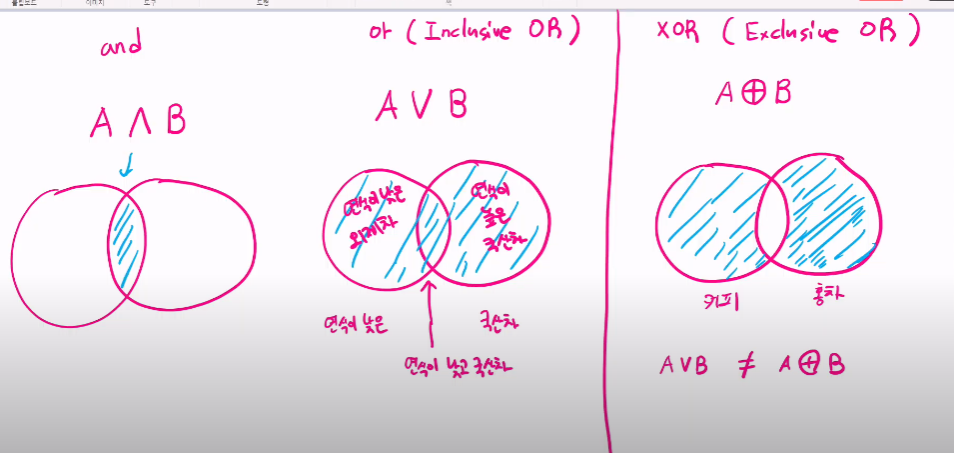 클립보드
이미지
도구
도형
색
and
A ∧ B
or ( Inclusive OR )
A ∨ B
연식이 낮은
외제차
연식이
높은
국산차
연식이 낮은
국산차
연식이 낮고 국산차
XOR ( Exclusive OR )
A ⊕ B
커피
홍차
A ∨ B ≠ A ⊕ B